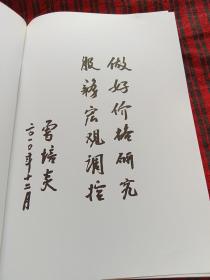 做好价格研究
服务宏观调控
曾培炎
二〇〇年十二月